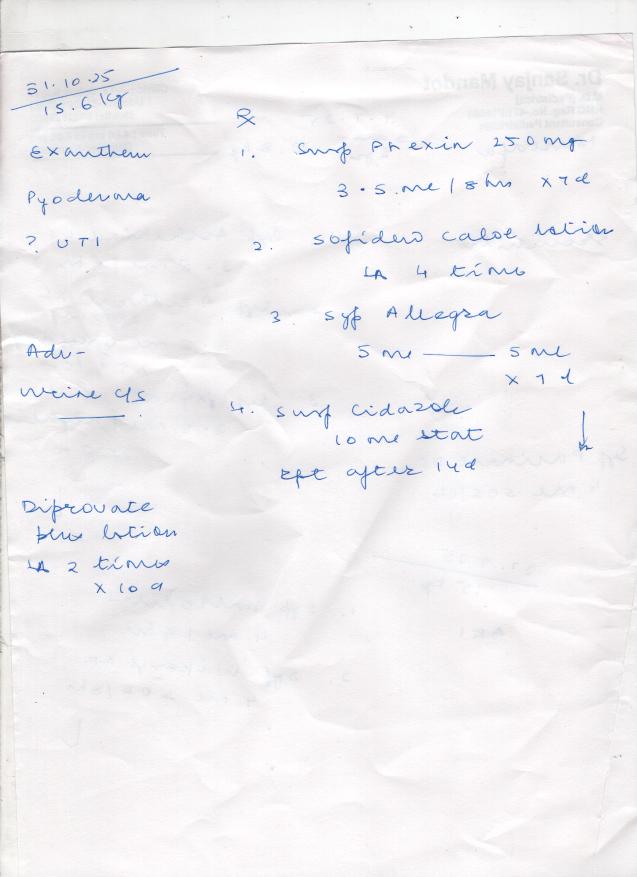 31.10.25
15.6 kg
Exanthem
Pyoderma
? UTI
Adv-
Urine c/s
Diprovate
plus lotion
LA 2 times
x 10 d
Rx
1. Susp Phexin 250 mg
3.5 ml / 8 hrs x 7d
2. Sofidew Caloe lotion
LA 4 times
3. Syp Allegra
5 ml —— 5 ml
x 7 d
4. Susp Cidazole
10 ml stat
rpt after 14d